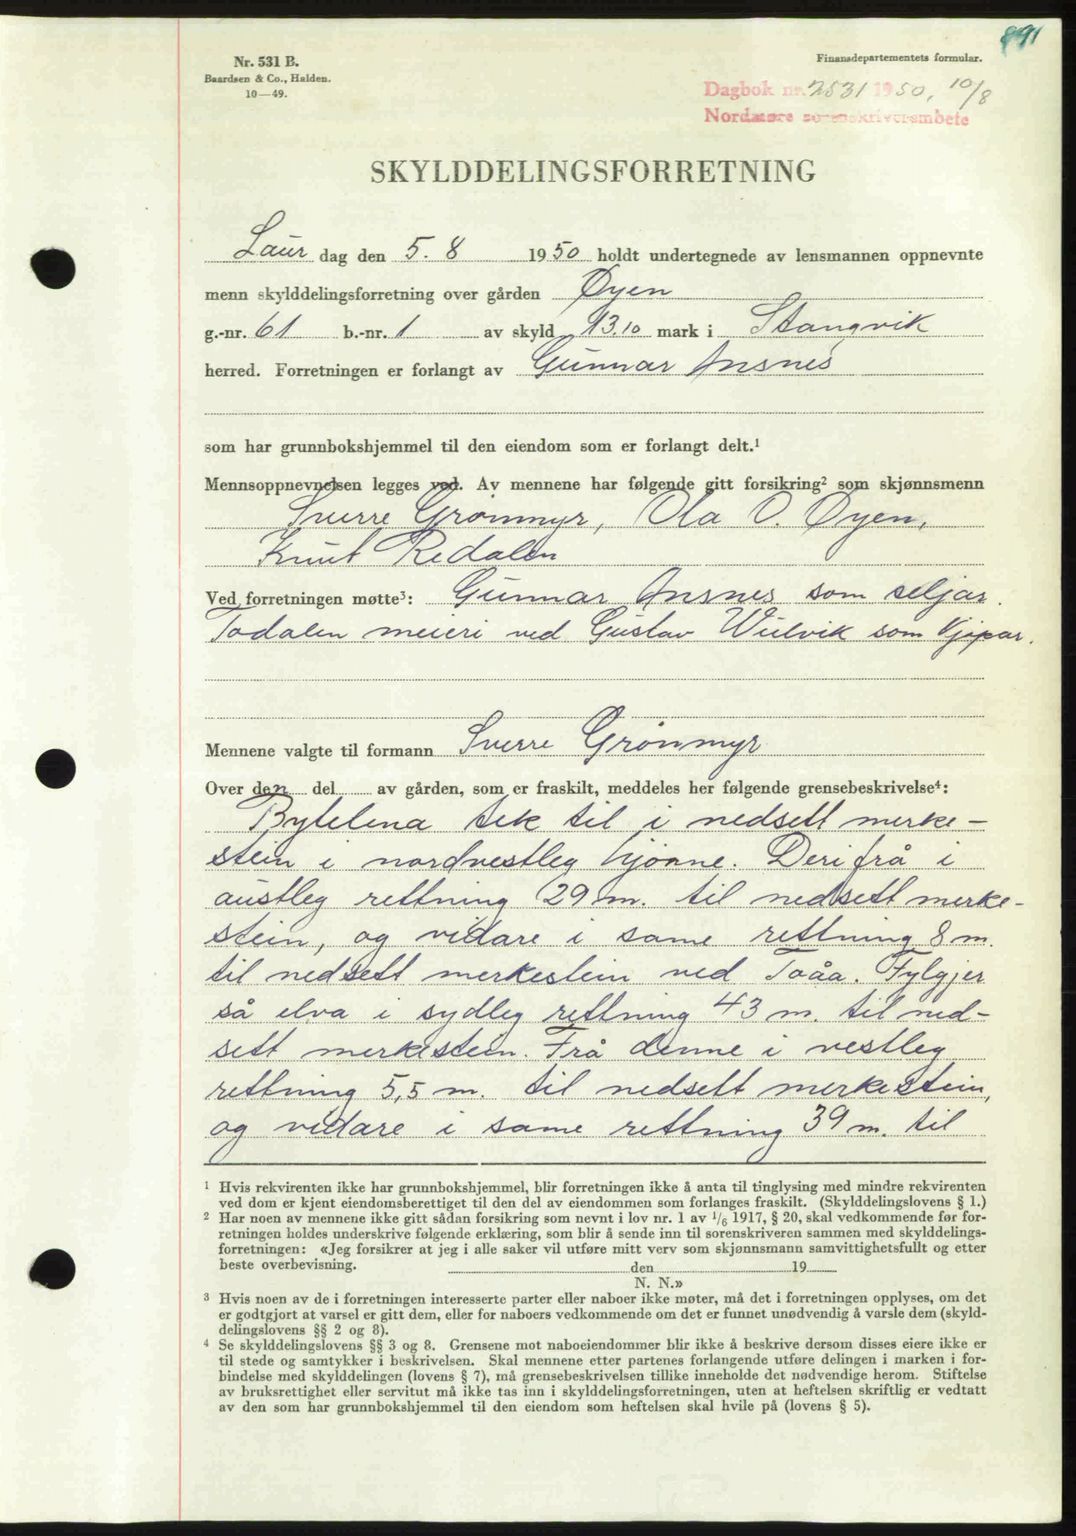 891
Nr. 531 B.
Baardsen & Co., Halden.
10—49.
Finansdepartementets formular.
Dagbok nr. 2531 1950, 10/8
Nordmøre sorenskriverambete
SKYLDDELINGSFORRETNING
Laur dag den 5. 8 1950 holdt undertegnede av lensmannen oppnevnte
menn skylddelingsforretning over gården Øyen
g.-nr. 61 b.-nr. 1 av skyld 13.10 mark i Stangvik
herred. Forretningen er forlangt av Gunnar Ansnes
som har grunnbokshjemmel til den eiendom som er forlangt delt.¹
Mennsoppnevnelsen legges ved. Av mennene har følgende gitt forsikring² som skjønnsmenn
Sverre Grønmyr, Ola O. Øyen,
Knut Redalen
Ved forretningen møtte³: Gunnar Ansnes som seljar.
Todalen meieri ved Gustav Wulvik som kjøpar.
Mennene valgte til formann Sverre Grønmyr
Over den del av gården, som er fraskilt, meddeles her følgende grensebeskrivelse⁴:
Bytelina tek til i nedsett merke-
stein i nordvestleg hjørne. Derifrå i
austleg rettning 29 m. til nedsett merke-
stein, og vidare i same rettning 8 m.
til nedsett merkestein ved Toåa. Fylgjer
så elva i sydleg rettning 43 m. til ned-
sett merkestein. Frå denne i vestleg
rettning 5,5 m. til nedsett merkestein,
og vidare i same rettning 39 m. til
¹ Hvis rekvirenten ikke har grunnbokshjemmel, blir forretningen ikke å anta til tinglysing med mindre rekvirenten
ved dom er kjent eiendomsberettiget til den del av eiendommen som forlanges fraskilt. (Skylddelingslovens § 1.)
² Har noen av mennene ikke gitt sådan forsikring som nevnt i lov nr. 1 av 1/6 1917, § 20, skal vedkommende før for-
retningen holdes underskrive følgende erklæring, som blir å sende inn til sorenskriveren sammen med skylddelings-
forretningen: «Jeg forsikrer at jeg i alle saker vil utføre mitt verv som skjønnsmann samvittighetsfullt og etter
beste overbevisning. den 19
N. N.»
³ Hvis noen av de i forretningen interesserte parter eller naboer ikke møter, må det i forretningen opplyses, om det
er godtgjort at varsel er gitt dem, eller for naboers vedkommende om det er funnet unødvendig å varsle dem (skyld-
delingslovens §§ 2 og 8).
⁴ Se skylddelingslovens §§ 3 og 8. Grensene mot naboeiendommer blir ikke å beskrive dersom disses eiere ikke er
til stede og samtykker i beskrivelsen. Skal mennene etter partenes forlangende utføre delingen i marken i for-
bindelse med skylddelingen (lovens § 7), må grensebeskrivelsen tillike inneholde det nødvendige herom. Stiftelse
av bruksrettighet eller servitut må ikke tas inn i skylddelingsforretningen, uten at heftelsen skriftlig er vedtatt
av den som har grunnbokshjemmel til den eiendom som heftelsen skal hvile på (lovens § 5).